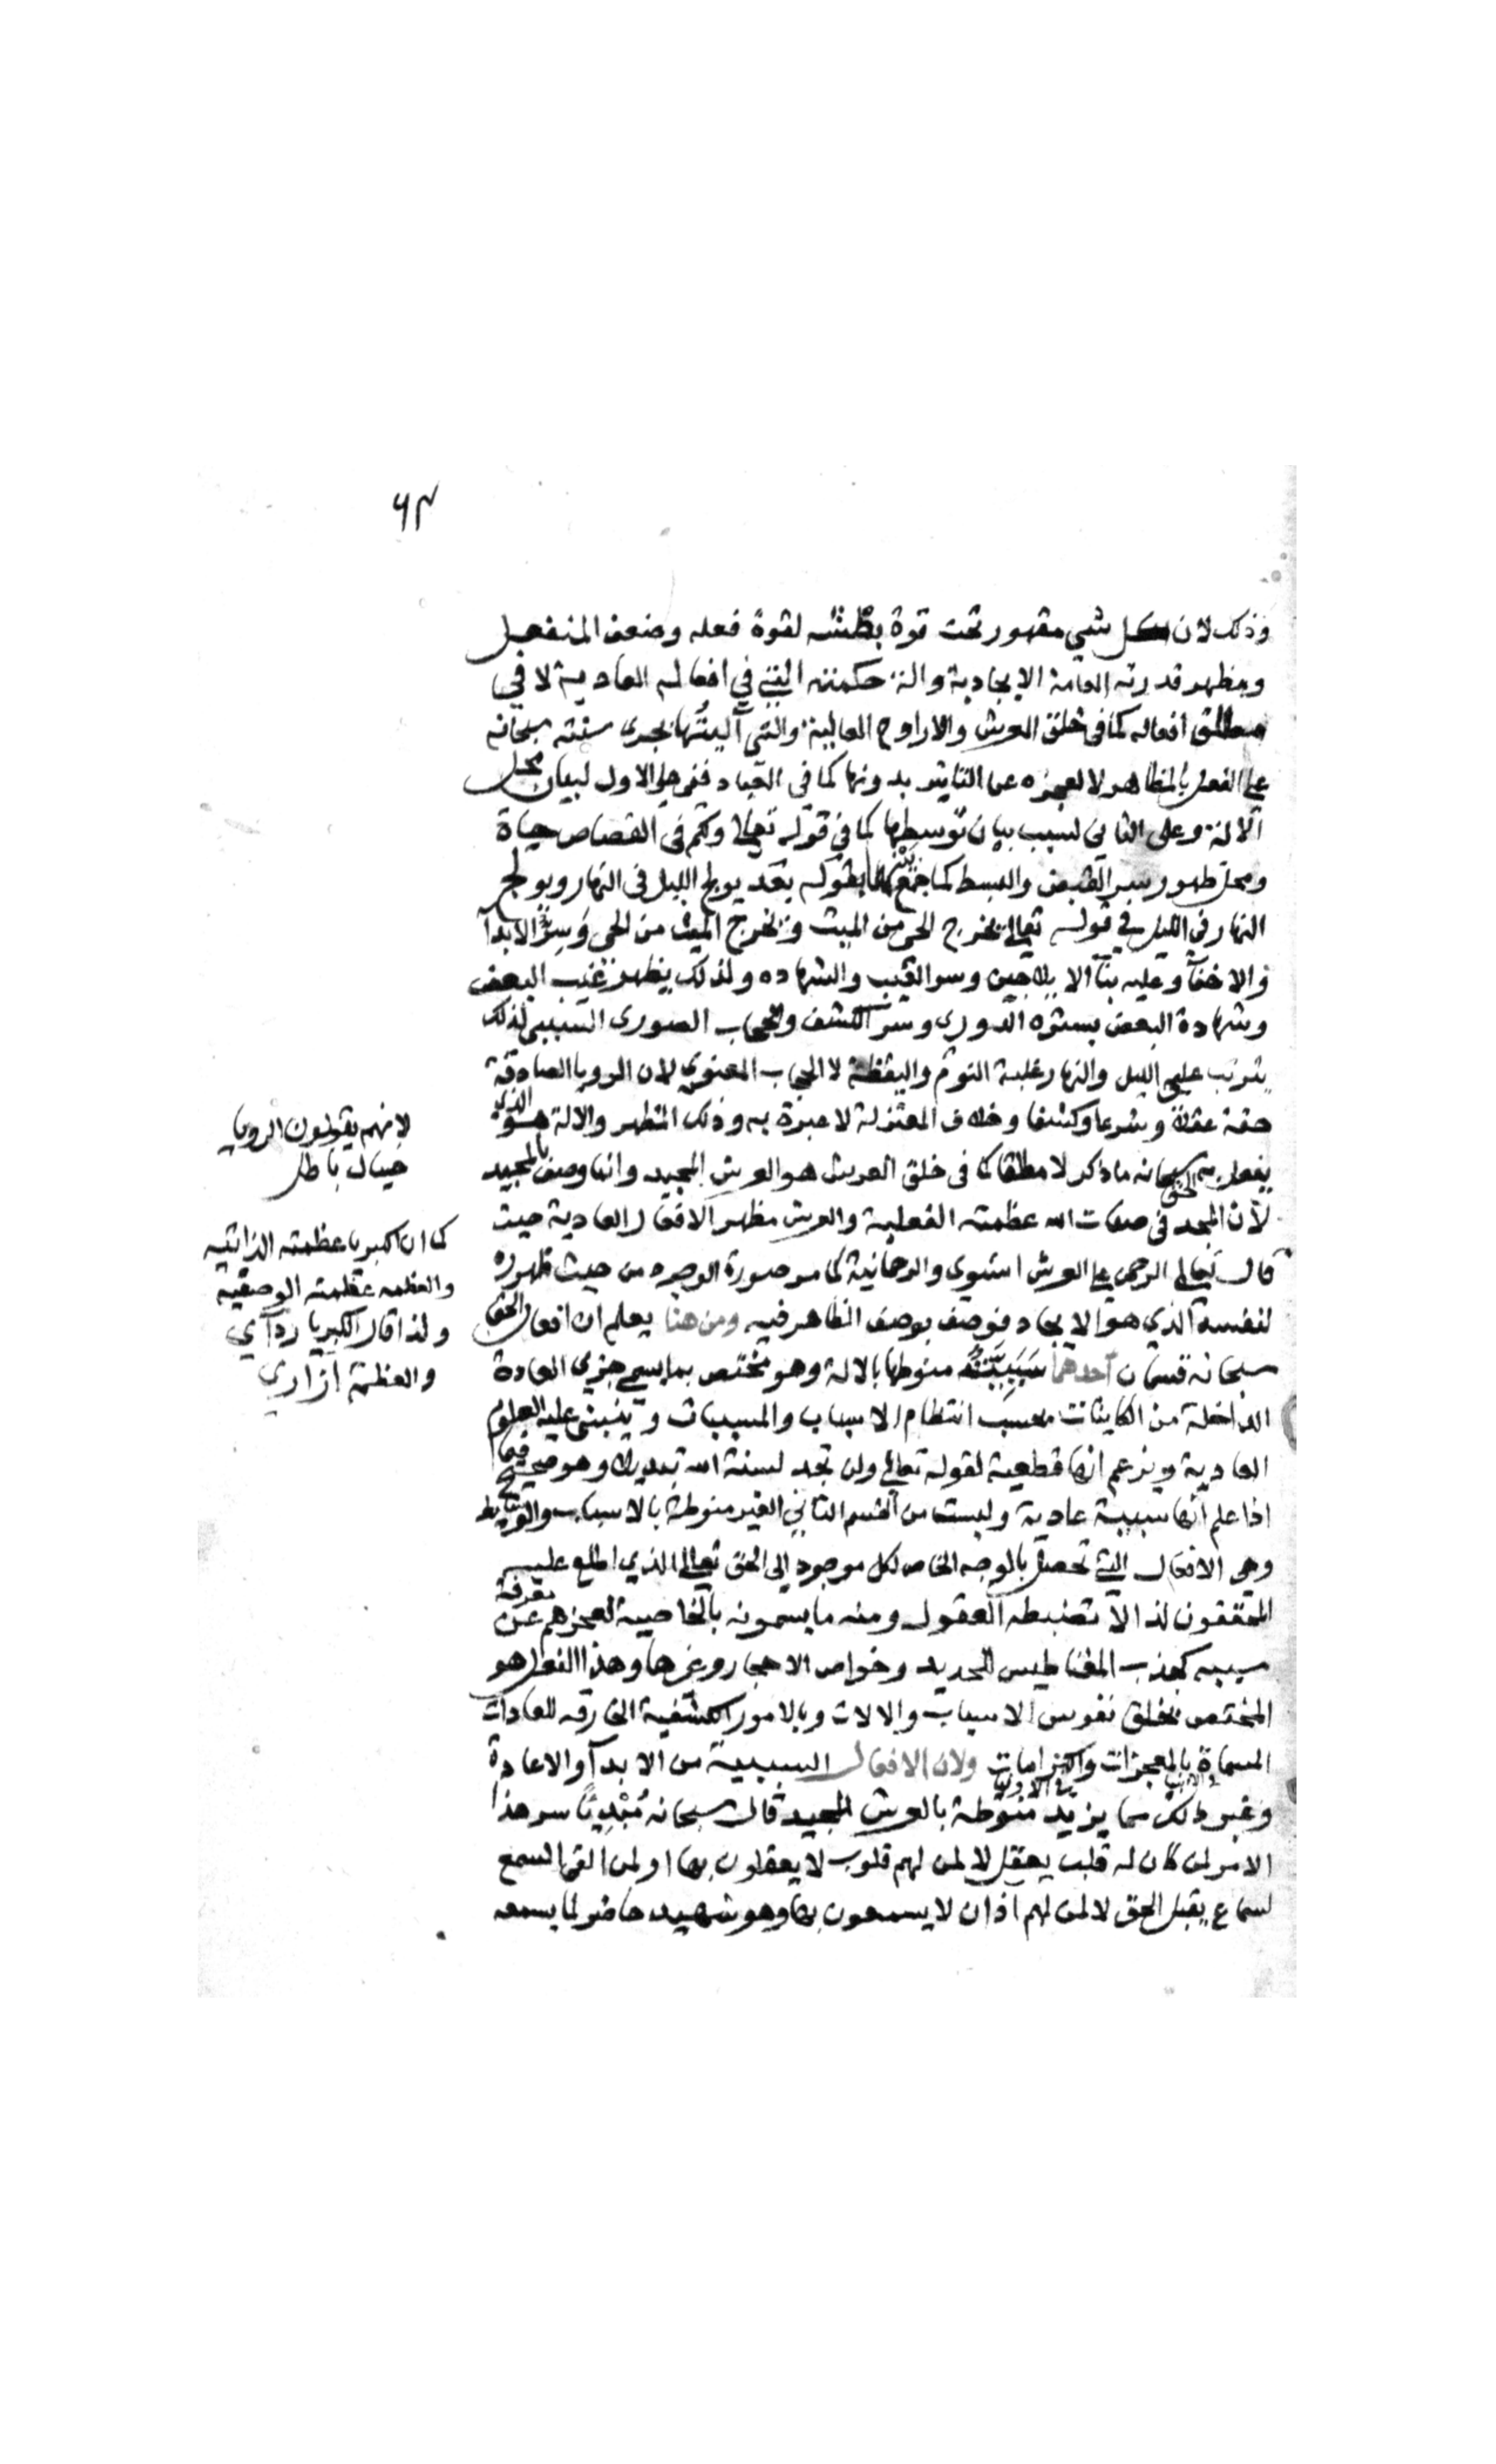 ٦٣
وذلك لان كل شي مقهور تحت قوة بطشه لقوة فعله وضعف المنفعل
ومظهر قدرته العامة الايجادية والة حكمته التي في افعاله العادية لا في
مطلق افعاله كما في خلق العرش والارواح العالية والتي آليتها بجرى سنته سبحانه
على الفعل بالمظاهر لا لعجزه عن التاثير بدونها كما في العباد ففي على الاول لبيان محل
الالة وعلى الثاني لسبب بيان توسيطها كما في قوله تعالى ولكم في القصاص حياة
ومحل ظهور سر القبض والبسط كما جمع بقوله بعد يولج الليل في النهار ويولج
النهار في الليل في قوله تعالى يخرج الحي من الميت ويخرج الميت من الحي وسر الابدا
والاخفآ وعليه بنآ الايلاجين وسر الغيب والشهاده ولذلك يظهر غيب البعض
وشهادة البعض بستره الدوري وسر الكشف والحجاب الصوري السببي لذلك
يترتب على الليل والنهار غلبة النوم واليقظة لا الحجاب المعنوي لان الرويا الصادقة
حقة عقلا وشرعا وكشفا وخلاف المعتزلة لا عبرة به وذلك المظهر والالة هو الذي
يفعل به الحق سبحانه ما ذكر لا مطلقا كما في خلق العرش هو العرش المجيد وانما وصف بالمجيد
لان المجد في صفات الله عظمته الفعلية والعرش مظهر الافعال العادية حيث
قال تعالى الرحمن على العرش استوى والرحمانية كما مر صورة الوجود من حيث ظهوره
لنفسه الذي هو الايجاد فوصف بوصف الظاهر فيه ومن هنا يعلم ان افعال الحق
سبحانه قسمان احدهما سببية منوطها بالالة وهو مختص بما يسمى جري العادة
الداخلة من الكاينات بحسب انتظام الاسباب والمسببات وينبني عليه العلوم
العادية ويزعم انها قطعية لقوله تعالى ولن تجد لسنة الله تبديلا وهو صحيح فيما
اذا علم انها سببية عادية وليست من القسم الثاني الغير منوط بالاسباب والوسايط
وهي الافعال التي تحصل بالوجه الخاص لكل موجود الى الحق تعالى الذي اطلع عليه
المحققون لذا لا تضبطه العقول ومنه ما يسمونه بالخاصية لعجزهم عن معرفة
سببه كجذب المغناطيس للحديد وخواص الاحجار وغيرها وهذا الفعل هو
المختص بخلق نفوس الاسباب والالات وبالامور الكشفية الخارقه للعادات
المسماة بالمعجزات والكرامات ولان الافعال السببية من الابدآ والاعادة
وغير ذلك مما يزيد منوطة بالعرش المجيد قال سبحانه مبديا سر هذا
الامر لمن كان له قلب يعقل لا لمن لهم قلوب لا يعقلون بها او لمن القى السمع
لسماع يقبل الحق لا لمن لهم اذان لا يسمعون بها وهو شهيد حاضر لما يسمعه
لانهم يقولون الرويا
خيال باطل
كما ان الكبريا عظمته الذاتية
والعظمه عظمته الوصفيه
ولذا قال الكبريا ردآي
والعظمة ازاري